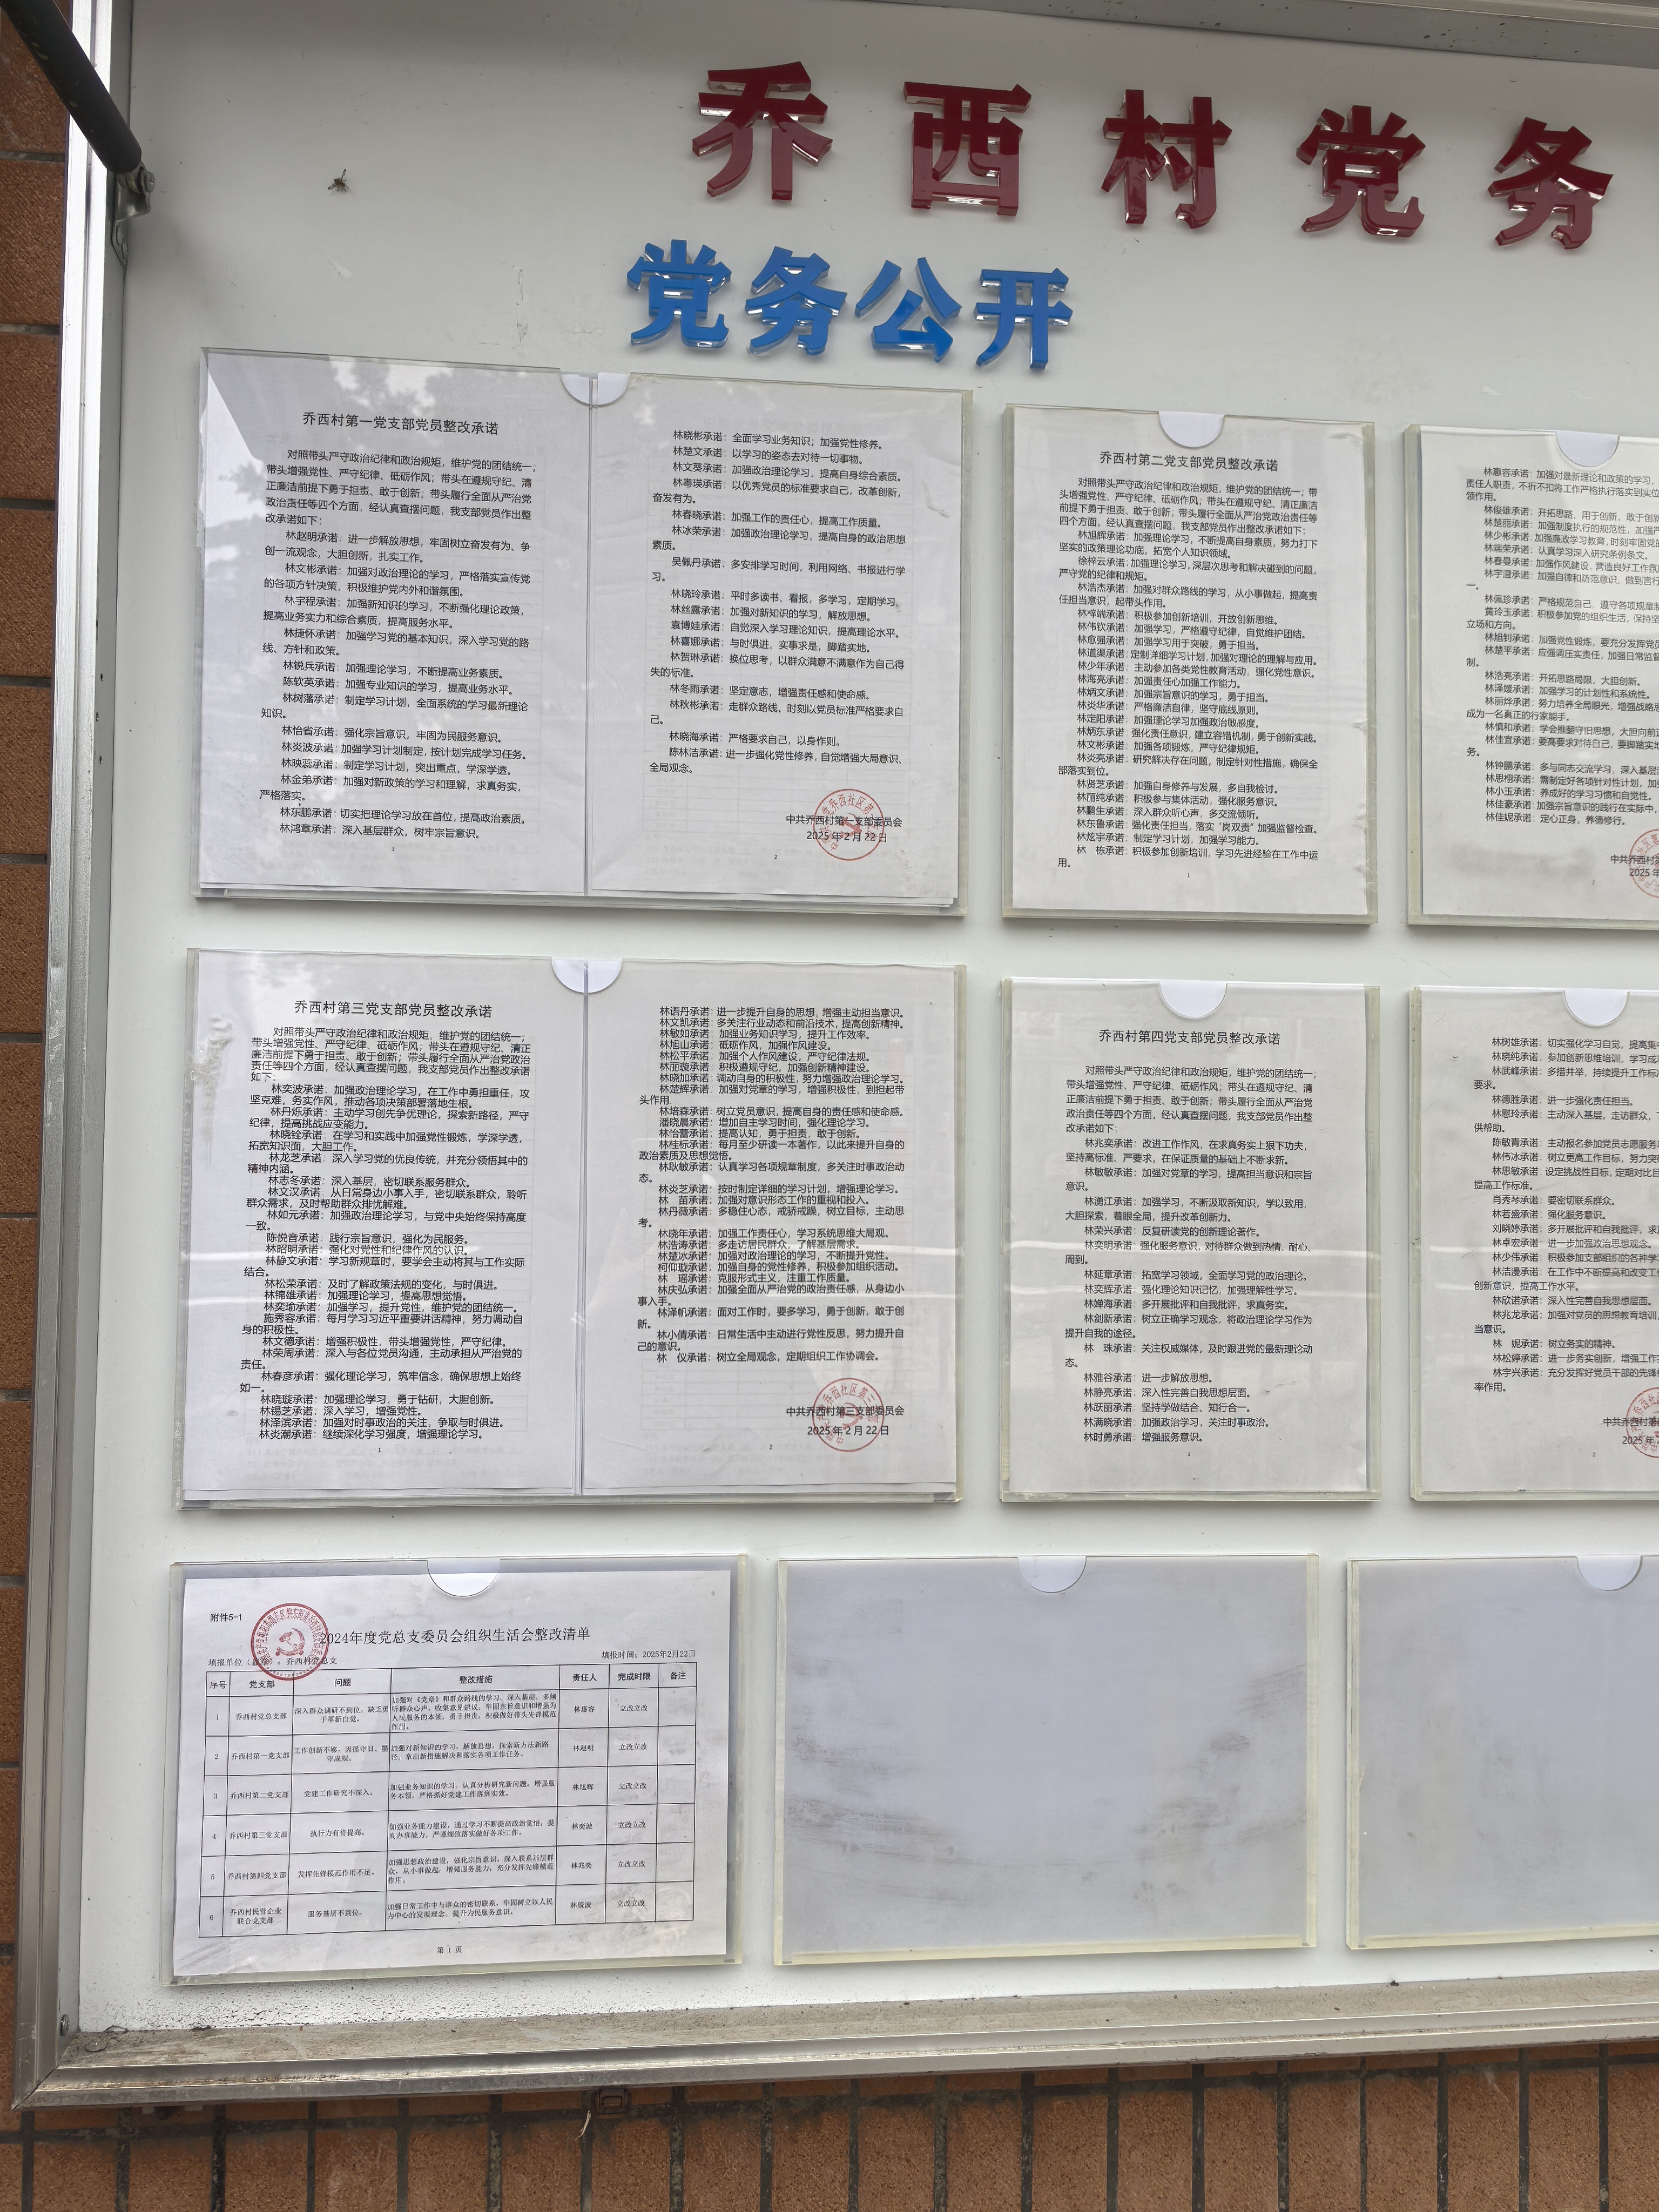 乔西村党务
党务公开
乔西村第一党支部党员整改承诺
对照带头严守政治纪律和政治规矩，维护党的团结统一；
带头增强党性、严守纪律、砥砺作风；带头在遵规守纪、清
正廉洁前提下勇于担责、敢于创新；带头履行全面从严治党
政治责任等四个方面，经认真查摆问题，我支部党员作出整
改承诺如下：
林赵明承诺：进一步解放思想，牢固树立奋发有为、争
创一流观念，大胆创新，扎实工作。
林文彬承诺：加强对政治理论的学习，严格落实宣传党
的各项方针决策，积极维护党内外和谐氛围。
林宇程承诺：加强新知识的学习，不断强化理论政策，
提高业务实力和综合素质，提高服务水平。
林捷怀承诺：加强学习党的基本知识，深入学习党的路
线、方针和政策。
林锐兵承诺：加强理论学习，不断提高业务素质。
陈软英承诺：加强专业知识的学习，提高业务水平。
林树藩承诺：制定学习计划，全面系统的学习最新理论
知识。
林怡省承诺：强化宗旨意识，牢固为民服务意识。
林炎波承诺：加强学习计划制定，按计划完成学习任务。
林映蕊承诺：制定学习计划，突出重点，学深学透。
林金弟承诺：加强对新政策的学习和理解，求真务实，
严格落实。
林东鹏承诺：切实把理论学习放在首位，提高政治素质。
林鸿章承诺：深入基层群众，树牢宗旨意识。
1
林晓彬承诺：全面学习业务知识；加强党性修养。
林楚文承诺：以学习的姿态去对待一切事物。
林文葵承诺：加强政治理论学习，提高自身综合素质。
林粤瑛承诺：以优秀党员的标准要求自己，改革创新，
奋发有为。
林春晓承诺：加强工作的责任心，提高工作质量。
林冰荣承诺：加强政治理论学习，提高自身的政治思想
素质。
吴佩丹承诺：多安排学习时间，利用网络、书报进行学
习。
林晓玲承诺：平时多读书、看报，多学习，定期学习。
林丝露承诺：加强对新知识的学习，解放思想。
袁博娃承诺：自觉深入学习理论知识，提高理论水平。
林喜娜承诺：与时俱进，实事求是，脚踏实地。
林贺琳承诺：换位思考，以群众满意不满意作为自己得
失的标准。
林冬雨承诺：坚定意志，增强责任感和使命感。
林秋彬承诺：走群众路线，时刻以党员标准严格要求自
己。
林晓海承诺：严格要求自己，以身作则。
陈林洁承诺：进一步强化党性修养，自觉增强大局意识、
全局观念。
中共乔西村第一支部委员会
2025年2月22日
2
乔西村第二党支部党员整改承诺
对照带头严守政治纪律和政治规矩，维护党的团结统一；带
头增强党性、严守纪律、砥砺作风；带头在遵规守纪、清正廉洁
前提下勇于担责、敢于创新；带头履行全面从严治党政治责任等
四个方面，经认真查摆问题，我支部党员作出整改承诺如下：
林旭辉承诺：加强理论学习，不断提高自身素质，努力打下
坚实的政策理论功底，拓宽个人知识领域。
徐梓云承诺：加强理论学习，深层次思考和解决碰到的问题，
严守党的纪律和规矩。
林浩杰承诺：加强对群众路线的学习，从小事做起，提高责
任担当意识，起带头作用。
林梓端承诺：积极参加创新培训，开放创新思维。
林伟钦承诺：加强学习，严格遵守纪律，自觉维护团结。
林愈强承诺：加强学习用于突破，勇于担当。
林道渠承诺：定制详细学习计划，加强对理论的理解与应用。
林少年承诺：主动参加各类党性教育活动，强化党性意识。
林海亮承诺：加强责任心加强工作能力。
林炳文承诺：加强宗旨意识的学习，勇于担当。
林炎华承诺：严格廉洁自律，坚守底线原则。
林定阳承诺：加强理论学习加强政治敏感度。
林炳东承诺：强化责任意识，建立容错机制，勇于创新实践。
林文彬承诺：加强各项锻炼，严守纪律规矩。
林炎亮承诺：研究解决存在问题，制定针对性措施，确保全
部落实到位。
林贤芝承诺：加强自身修养与发展，多自我检讨。
林丽纯承诺：积极参与集体活动，强化服务意识。
林鹏生承诺：深入群众听心声，多交流倾听。
林东鲁承诺：强化责任担当，落实“岗双责”加强监督检查。
林炫宇承诺：制定学习计划，加强学习能力。
林　栋承诺：积极参加创新培训，学习先进经验在工作中运
用。
1
林惠容承诺：加强对最新理论和政策的学习，
责任人职责，不折不扣将工作严格执行落实到实位
领作用。
林俊雄承诺：开拓思路，用于创新，敢于创新
林楚丽承诺：加强制度执行的规范性，加强严
林少彬承诺：加强廉政学习教育，时刻牢固党的
林端荣承诺：认真学习深入研究条例条文。
林春曼承诺：加强作风建设，营造良好工作氛
林宇澄承诺：加强自律和防范意识，做到言行
一。
林佩珍承诺：严格规范自己，遵守各项规章制
黄玲玉承诺：积极参加党的组织生活，保持坚
立场和方向。
林旭钊承诺：加强党性锻炼，要充分发挥党员
林楚平承诺：应强调压实责任，加强日常监督
制。
林浩亮承诺：开拓思路局限，大胆创新。
林泽媛承诺：加强学习的计划性和系统性。
林丽烨承诺：努力培养全局眼光，增强战略思
成为一名真正的行家能手。
林慎和承诺：学会推翻守旧思想，大胆向前迈
林佳宜承诺：要高要求对待自己，要脚踏实地
务。
林钟鹏承诺：多与同志交流学习，深入基层
林思栩承诺：需制定好各项针对性计划，加强
林小玉承诺：养成好的学习习惯和自觉性。
林佳豪承诺：加强宗旨意识的践行在实际中，
林佳妮承诺：定心正身，养德修行。
中共乔西村第
2025年
2
乔西村第三党支部党员整改承诺
对照带头严守政治纪律和政治规矩，维护党的团结统一；
带头增强党性、严守纪律、砥砺作风；带头在遵规守纪、清正
廉洁前提下勇于担责、敢于创新；带头履行全面从严治党政治
责任等四个方面，经认真查摆问题，我支部党员作出整改承诺
如下：
林奕波承诺：加强政治理论学习，在工作中勇担重任，攻
坚克难，务实作风，推动各项决策部署落地生根。
林丹烁承诺：主动学习创先争优理论，探索新路径，严守
纪律，提高挑战应变能力。
林晓铨承诺：在学习和实践中加强党性锻炼，学深学透，
拓宽知识面，大胆工作。
林龙芝承诺：深入学习党的优良传统，并充分领悟其中的
精神内涵。
林志冬承诺：深入基层，密切联系服务群众。
林文汉承诺：从日常身边小事入手，密切联系群众，聆听
群众需求，及时帮助群众排忧解难。
林如元承诺：加强政治理论学习，与党中央始终保持高度
一致。
陈悦音承诺：践行宗旨意识，强化为民服务。
林昭明承诺：强化对党性和纪律作风的认识。
林静文承诺：学习新规章时，要学会主动将其与工作实际
结合。
林松荣承诺：及时了解政策法规的变化，与时俱进。
林锦雄承诺：加强理论学习，提高思想觉悟。
林奕瑜承诺：加强学习，提升党性，维护党的团结统一。
施秀容承诺：每月学习习近平重要讲话精神，努力调动自
身的积极性。
林文德承诺：增强积极性，带头增强党性，严守纪律。
林荣周承诺：深入与各位党员沟通，主动承担从严治党的
责任。
林春彦承诺：强化理论学习，筑牢信念，确保思想上始终
如一。
林晓璇承诺：加强理论学习，勇于钻研，大胆创新。
林锡芝承诺：深入学习，增强党性。
林泽滨承诺：加强对时事政治的关注，争取与时俱进。
林炎潮承诺：继续深化学习强度，增强理论学习。
1
林语丹承诺：进一步提升自身的思想，增强主动担当意识。
林文凯承诺：多关注行业动态和前沿技术，提高创新精神。
林敏如承诺：加强业务知识学习，提升工作效率。
林旭山承诺：砥砺作风，加强作风建设。
林松平承诺：加强个人作风建设，严守纪律法规。
林丽璇承诺：积极遵规守纪，加强创新精神建设。
林晓加承诺：调动自身的积极性，努力增强政治理论学习。
林楚辉承诺：加强对党章的学习，增强积极性，到担起带
头作用。
林培森承诺：树立党员意识，提高自身的责任感和使命感。
潘晓晨承诺：增加自主学习时间，强化理论学习。
林怡蕾承诺：提高认知，勇于担责，敢于创新。
林桂标承诺：每月至少研读一本著作，以此来提升自身的
政治素质及思想觉悟。
林耿敏承诺：认真学习各项规章制度，多关注时事政治动
态。
林炎芝承诺：按时制定详细的学习计划，增强理论学习。
林　苗承诺：加强对意识形态工作的重视和投入。
林丹薇承诺：多稳住心态，戒骄戒躁，树立目标，主动思
考。
林晓年承诺：加强工作责任心，学习系统思维大局观。
林浩涛承诺：多走访居民群众，了解基层需求。
林楚冰承诺：加强对政治理论的学习，不断提升党性。
柯仰璇承诺：加强自身的党性修养，积极参加组织活动。
林　瑶承诺：克服形式主义，注重工作质量。
林庆弘承诺：加强全面从严治党的政治责任感，从身边小
事入手。
林泽帆承诺：面对工作时，要多学习，勇于创新，敢于创
新。
林小倩承诺：日常生活中主动进行党性反思，努力提升自
己的意识。
林　仪承诺：树立全局观念，定期组织工作协调会。
中共乔西村第三支部委员会
2025年2月22日
2
乔西村第四党支部党员整改承诺
对照带头严守政治纪律和政治规矩，维护党的团结统一；
带头增强党性、严守纪律、砥砺作风；带头在遵规守纪、清
正廉洁前提下勇于担责、敢于创新；带头履行全面从严治党
政治责任等四个方面，经认真查摆问题，我支部党员作出整
改承诺如下：
林兆奕承诺：改进工作作风，在求真务实上狠下功夫，
坚持高标准、严要求，在保证质量的基础上不断求新。
林敏敏承诺：加强对党章的学习，提高担当意识和宗旨
意识。
林湧江承诺：加强学习，不断汲取新知识，学以致用，
大胆探索，着眼全局，提升改革创新力。
林荣兴承诺：反复研读党的创新理论著作。
林奕明承诺：强化服务意识，对待群众做到热情、耐心、
周到。
林延章承诺：拓宽学习领域，全面学习党的政治理论。
林奕辉承诺：强化理论知识记忆，加强理解性学习。
林婵海承诺：多开展批评和自我批评，求真务实。
林创新承诺：树立正确学习观念，将政治理论学习作为
提升自我的途径。
林　珠承诺：关注权威媒体，及时跟进党的最新理论动
态。
林雅谷承诺：进一步解放思想。
林静亮承诺：深入性完善自我思想层面。
林跃丽承诺：坚持学做结合、知行合一。
林满晓承诺：加强政治学习，关注时事政治。
林时勇承诺：增强服务意识。
1
林树雄承诺：切实强化学习自觉，提高集中
林晓纯承诺：参加创新思维培训，学习成
林武峰承诺：多措并举，持续提升工作标准
要求。
林德胜承诺：进一步强化责任担当。
林慰玲承诺：主动深入基层，走访群众，
供帮助。
陈敏青承诺：主动报名参加党员志愿服务
林伟冰承诺：树立更高工作目标，努力突破
林思敏承诺：设定挑战性目标，定期对比目
提高工作标准。
肖秀琴承诺：要密切联系群众。
林若盛承诺：强化服务意识。
刘晓婷承诺：多开展批评和自我批评，求真
林卓宏承诺：进一步加强政治思想观念。
林少伟承诺：积极参加支部组织的各种学
林洁漫承诺：在工作中不断提高和改变工作
创新意识，提高工作水平。
林欣诺承诺：深入性完善自我思想层面。
林兆龙承诺：加强对党员的思想教育培训，
当意识。
林　妮承诺：树立务实的精神。
林松婷承诺：进一步务实创新，增强工作
林宇兴承诺：充分发挥好党员干部的先锋模
率作用。
中共乔西村第
2025年
2
附件5-1
2024年度党总支委员会组织生活会整改清单
填报单位（盖章）：乔西村党总支 填报时间：2025年2月22日
序号 党支部 问题 整改措施 责任人 完成时限 备注
1 乔西村党总支部 深入群众调研不到位，缺乏勇于革新自觉。 加强对《党章》和群众路线的学习，深入基层，多倾听群众心声，收集意见建议，牢固宗旨意识和增强为人民服务的本领，勇于担责，积极做好带头先锋模范作用。 林惠容 立改立改
2 乔西村第一党支部 工作创新不够，因循守旧、墨守成规。 加强对新知识的学习，解放思想，探索新方法新路径，拿出新措施解决和落实各项工作任务。 林赵明 立改立改
3 乔西村第二党支部 党建工作研究不深入。 加强业务知识的学习，认真分析研究新问题，增强服务本领，严格抓好党建工作落到实效。 林旭辉 立改立改
4 乔西村第三党支部 执行力有待提高。 加强业务能力建设，通过学习不断提高政治觉悟，提高办事能力，严谨细致落实做好各项工作。 林奕波 立改立改
5 乔西村第四党支部 发挥先锋模范作用不足。 加强思想政治建设，强化宗旨意识，深入联系基层群众，从小事做起，增强服务能力，充分发挥先锋模范作用。 林兆奕 立改立改
6 乔西村民营企业联合党支部 服务基层不到位。 加强日常工作中与群众的密切联系，牢固树立以人民为中心的发展理念，提升为民服务意识。 林锐波 立改立改
第 1 页